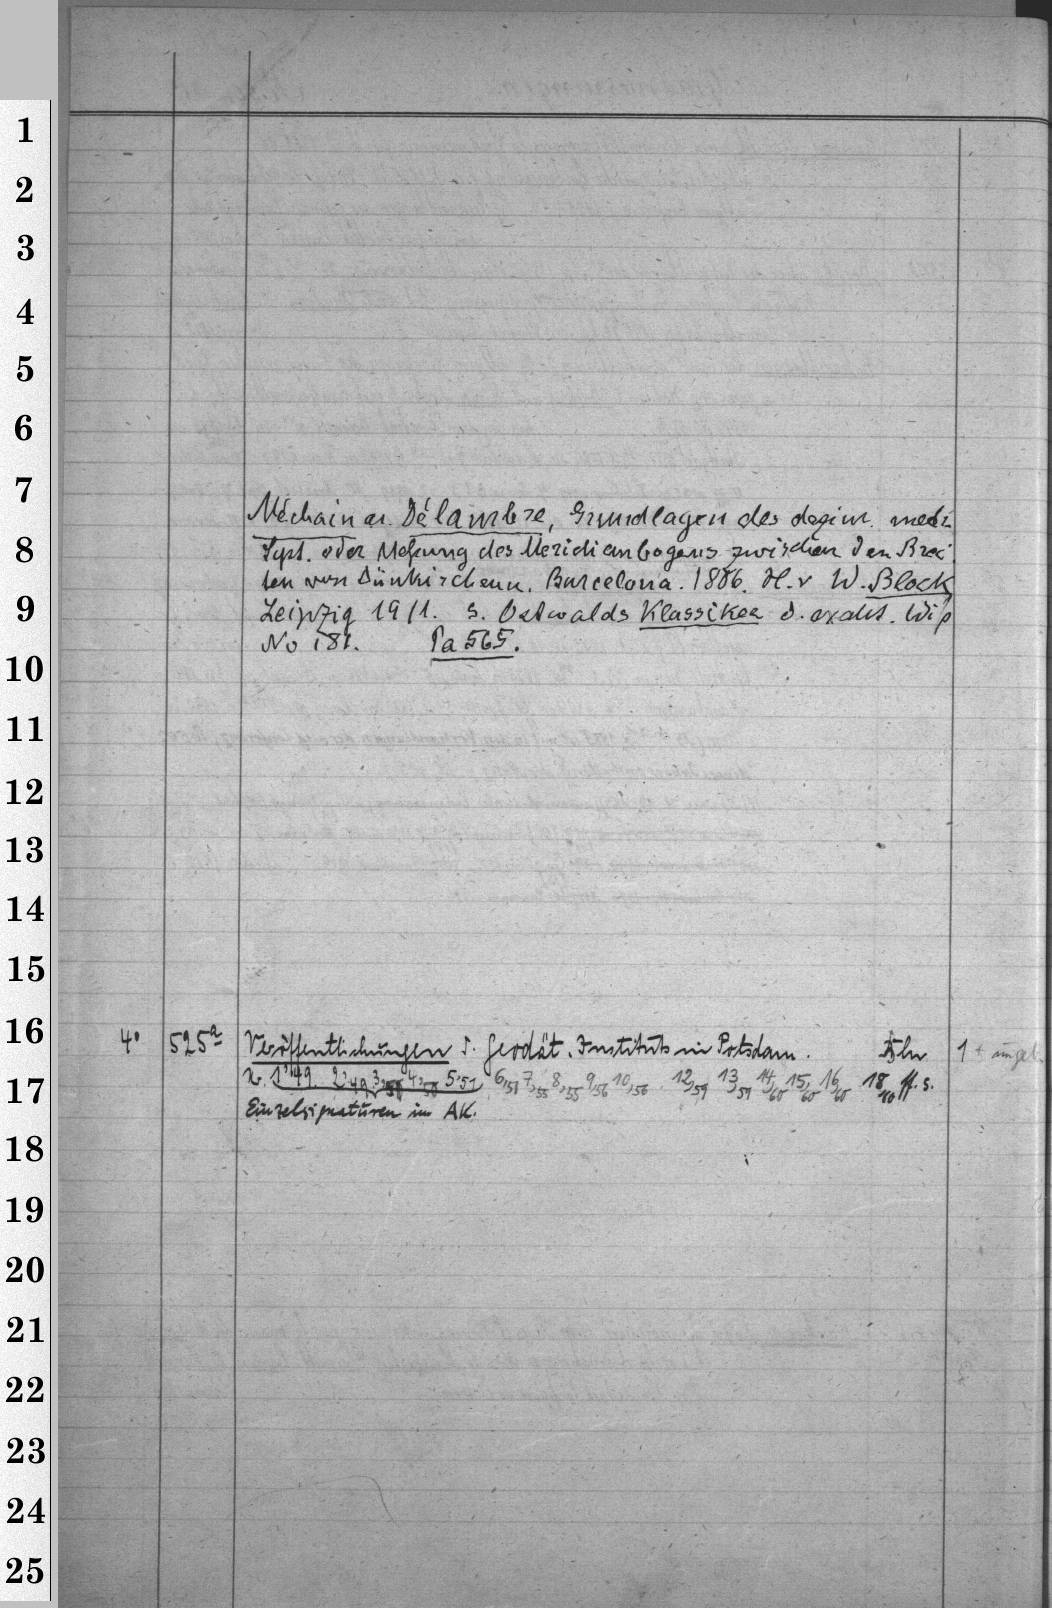 1
2
3
4
5
6
7
Méchain u. Délambre, Grundlagen des dezim. metr.
8
Syst. oder Messung des Meridianbogens zwischen den Brei
ten von Dünkirchen u. Barcelona. 1806. H. v W. Block
9
Leipzig 1911. s. Ostwalds Klassiker d. exakt. Wiss
No 181. Pa 565.
10
11
12
13
14
15
16
4° 525a Veröffentlichungen d. Geodät. Instituts in Potsdam. 1 + ungeb.
17
N. 1,49. 2,49 3,50 4,50 5,51 6,51 7,55 8,55 9,56 10,56 12,59 13,59 14,60 15,60 16,60 18,60 ff. s.
Einzelsignaturen im AK.
18
19
20
21
22
23
24
25